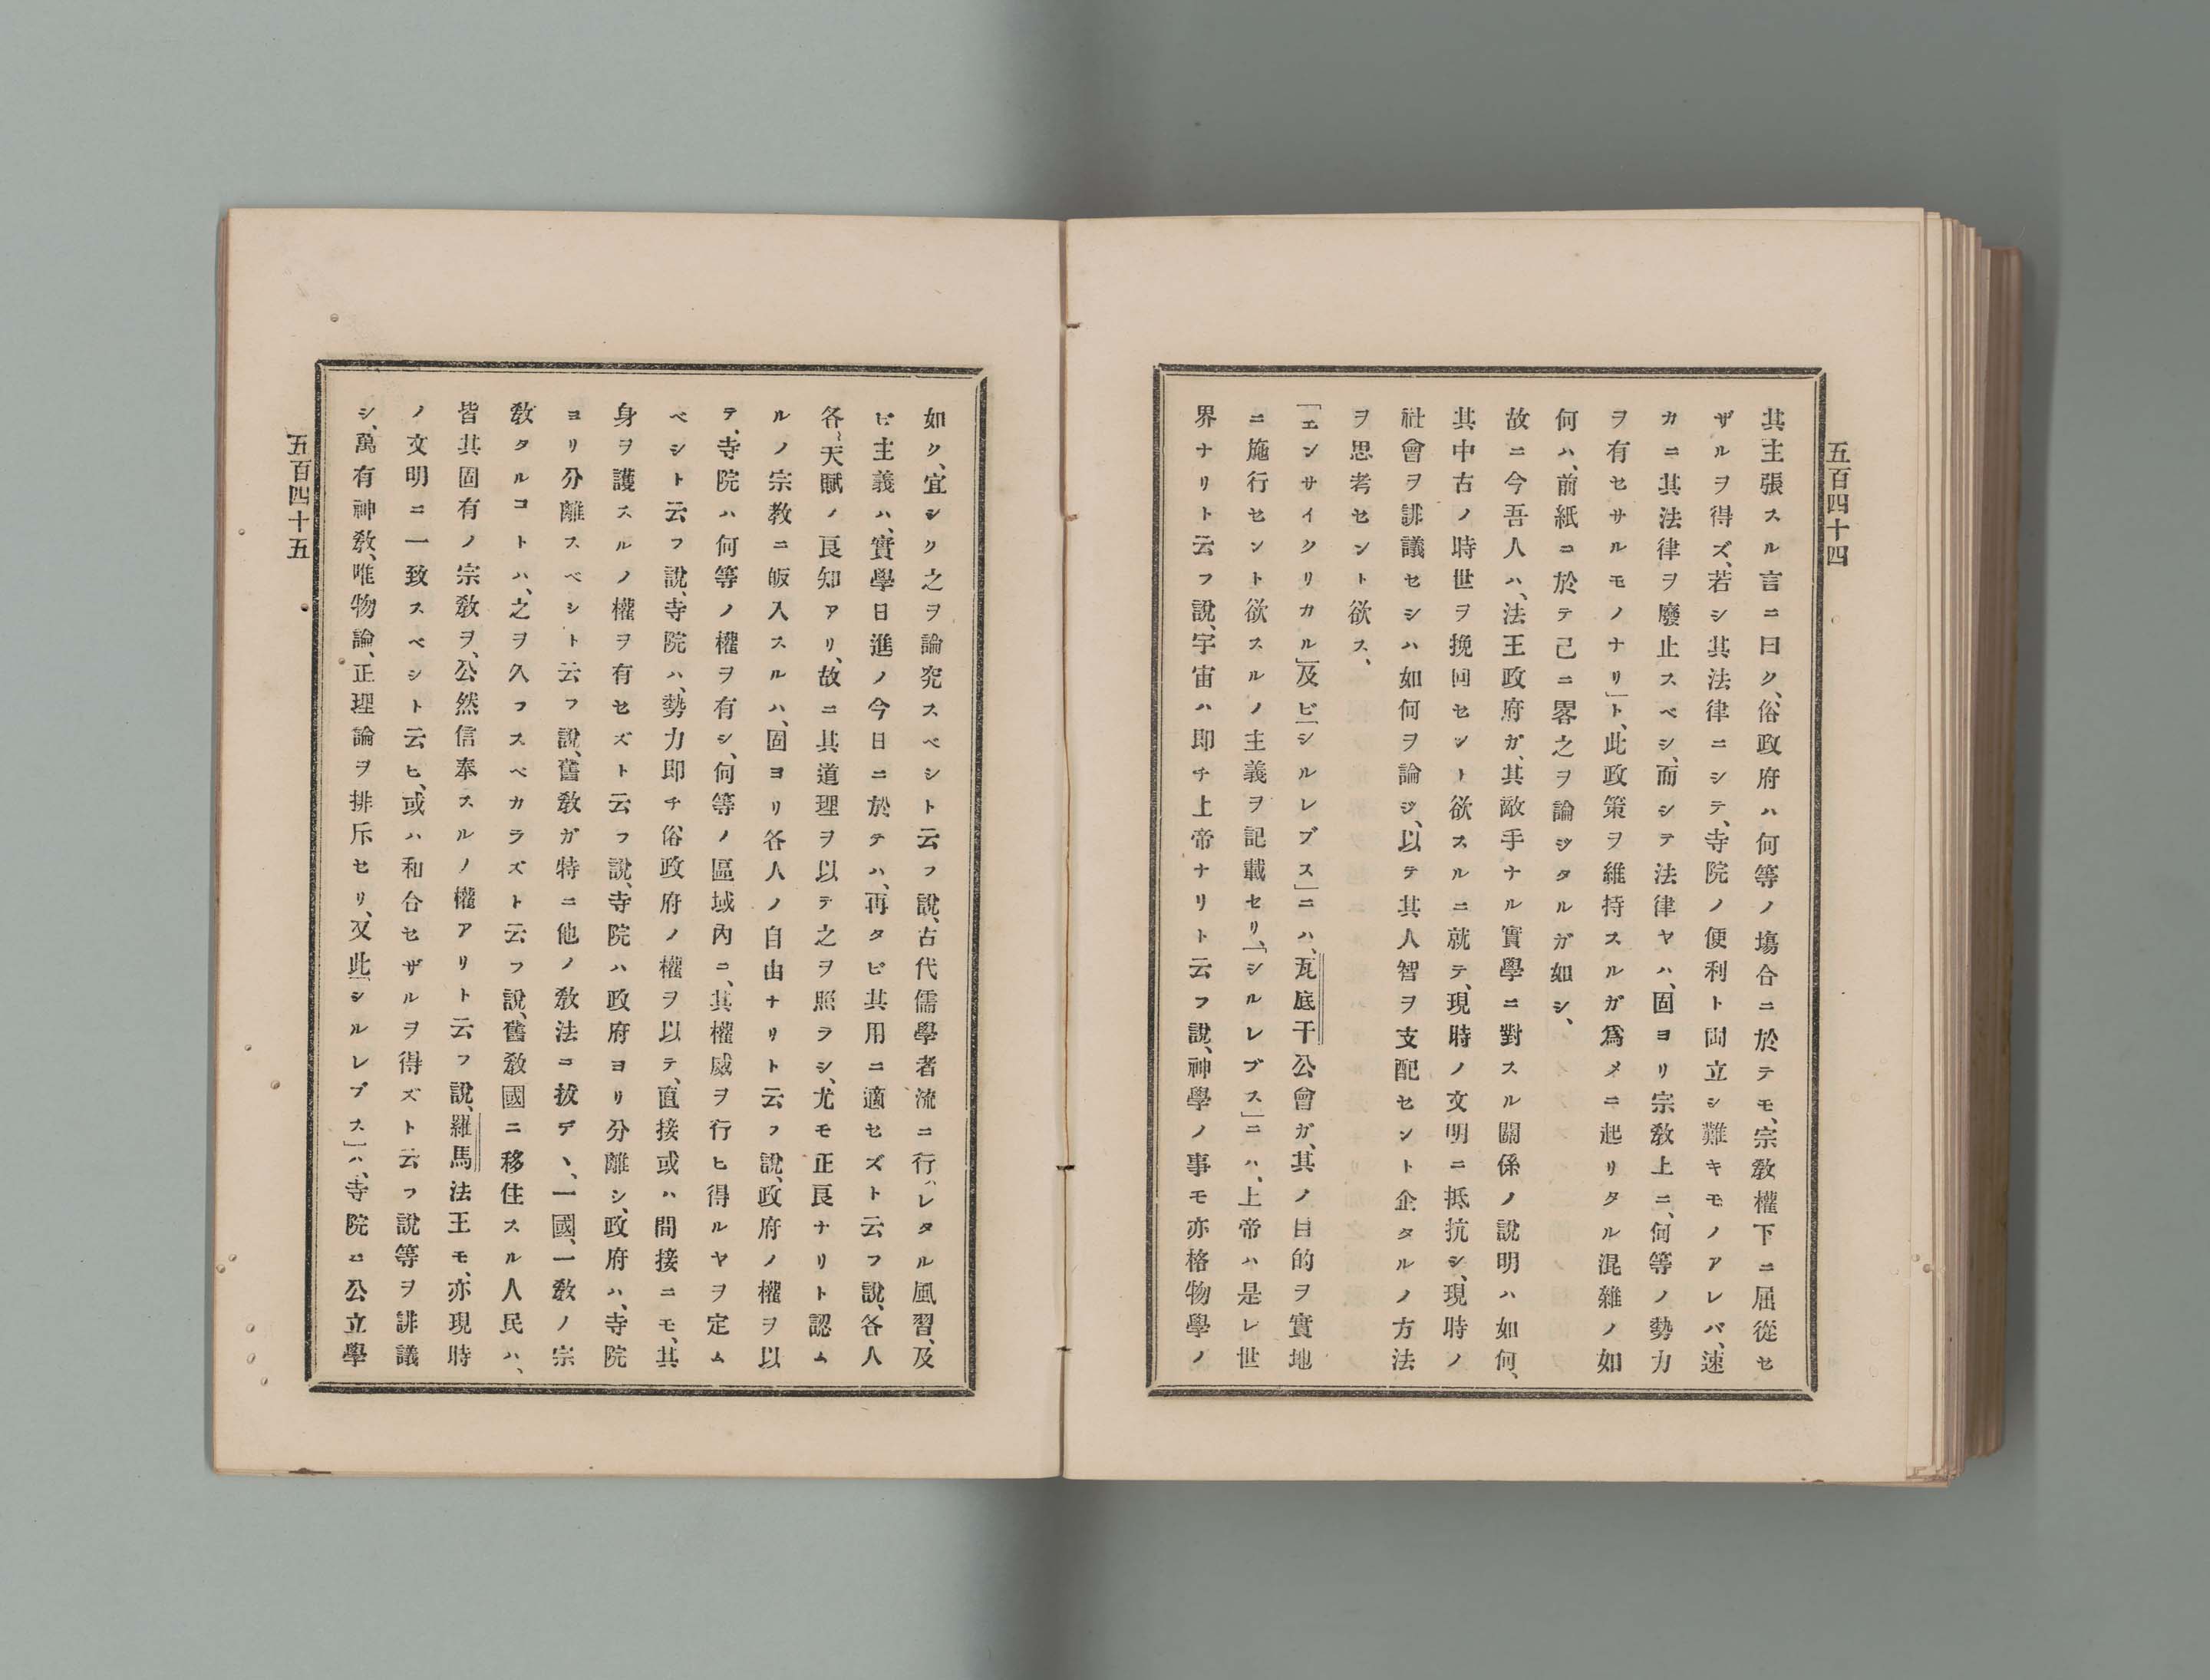 五百四十四
其主張スル言ニ曰ク、俗政府ハ何等ノ塲合ニ於テモ、宗敎權下ニ屈從セ
ザルヲ得ズ、若シ其法律ニシテ、寺院ノ便利ト両立シ難キモノアレバ、速
カニ其法律ヲ廢止スベシ、而シテ法律ヤハ、固ヨリ宗敎上ニ、何等ノ勢力
ヲ有セサルモノナリ」ト、此政策ヲ維持スルガ爲メニ起リタル混雜ノ如
何ハ、前紙ニ於テ己ニ畧之ヲ論ジタルガ如シ、
故ニ今吾人ハ、法王政府ガ、其敵手ナル實學ニ對スル關係ノ說明ハ如何、
其中古ノ時世ヲ挽回セント欲スルニ就テ、現時ノ文明ニ抵抗シ、現時ノ
社會ヲ誹議セシハ如何ヲ論ジ、以テ其人智ヲ支配セント企タルノ方法
ヲ思考セント欲ス、
「エンサイクリカル」及ビ「シルレブス」ニハ、瓦底干公會ガ、其ノ目的ヲ實地
ニ施行セント欲スルノ主義ヲ記載セリ、「シルレブス」ニハ、上帝ハ是レ世
界ナリト云フ說、宇宙ハ即チ上帝ナリト云フ說、神學ノ事モ亦格物學ノ
如ク、宜シク之ヲ論究スベシト云フ說、古代儒學者流ニ行ハレタル風習、及
ビ主義ハ、實學日進ノ今日ニ於テハ、再タビ其用ニ適セズト云フ說、各人
各〻天賦ノ良知アリ、故ニ其道理ヲ以テ之ヲ照ラシ、尤モ正良ナリト認ム
ルノ宗教ニ皈入スルハ、固ヨリ各人ノ自由ナリト云フ說、政府ノ權ヲ以
テ、寺院ハ何等ノ權ヲ有シ、何等ノ區域內ニ、其權威ヲ行ヒ得ルヤヲ定ム
ベシト云フ說、寺院ハ、勢力即チ俗政府ノ權ヲ以テ、直接或ハ間接ニモ、其
身ヲ護スルノ權ヲ有セズト云フ說、寺院ハ政府ヨリ分離シ、政府ハ、寺院
ヨリ分離スベシト云フ說、舊敎ガ特ニ他ノ敎法ニ拔デヽ、一國、一敎ノ宗
敎タルコトハ、之ヲ久フスベカラズト云フ說、舊敎國ニ移住スル人民ハ、
皆其固有ノ宗敎ヲ、公然信奉スルノ權アリト云フ說、羅馬法王モ、亦現時
ノ文明ニ一致スベシト云ヒ、或ハ和合セザルヲ得ズト云フ說等ヲ誹議
シ、萬有神敎、唯物論、正理論ヲ排斥セリ、又此「シルレブス」ハ、寺院ニ公立學
五百四十五